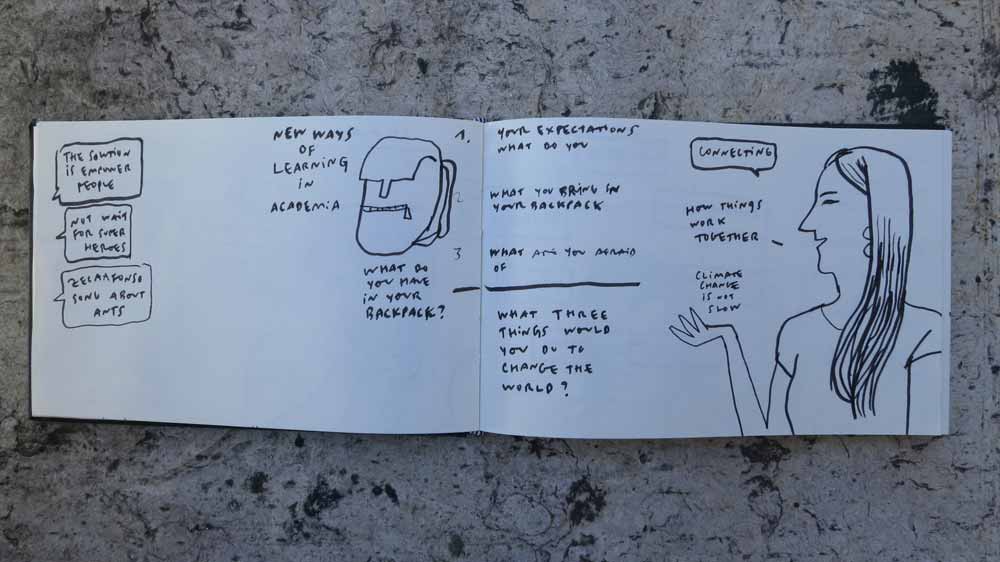 THE SOLUTION
IS EMPOWER
PEOPLE
NOT WAIT
FOR SUPER
HEROES
ZECA AFONSO
SONG ABOUT
ANTS
NEW WAYS
OF
LEARNING
IN
ACADEMIA
WHAT DO
YOU HAVE
IN YOUR
BACKPACK?
1.
YOUR EXPECTATIONS
WHAT DO YOU
2
WHAT YOU BRING IN
YOUR BACKPACK
3
WHAT ARE YOU AFRAID
OF
WHAT THREE
THINGS WOULD
YOU DO TO
CHANGE THE
WORLD?
CONNECTING
HOW THINGS
WORK
TOGETHER
CLIMATE
CHANGE
IS NOT
SLOW